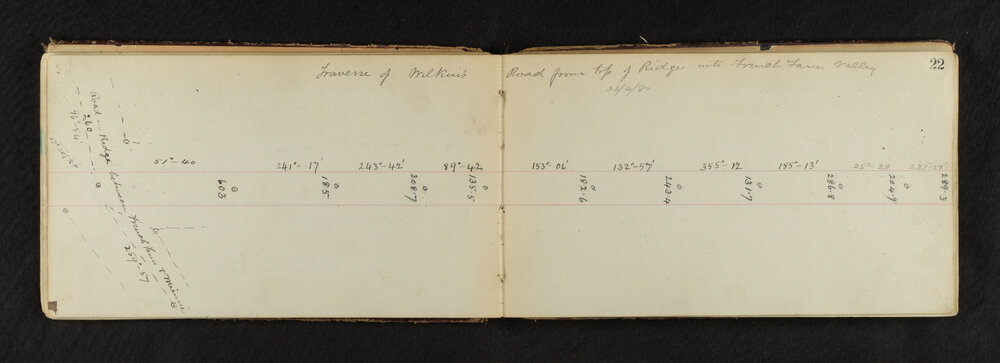 Traverse of Wilkin's Road from top of Ridge into French Farm Valley 22
23/4/80
51°-40 241°-17' 243°-42' 89°-42 153°-06' 132°-57' 355°-12 185°-13' 25°-22
603 185 308.7 135.5 182.6 243.4 131.7 286.8 204.9 289.3
Road on Ridge between French Farm &
260
96°-54'
259°-57